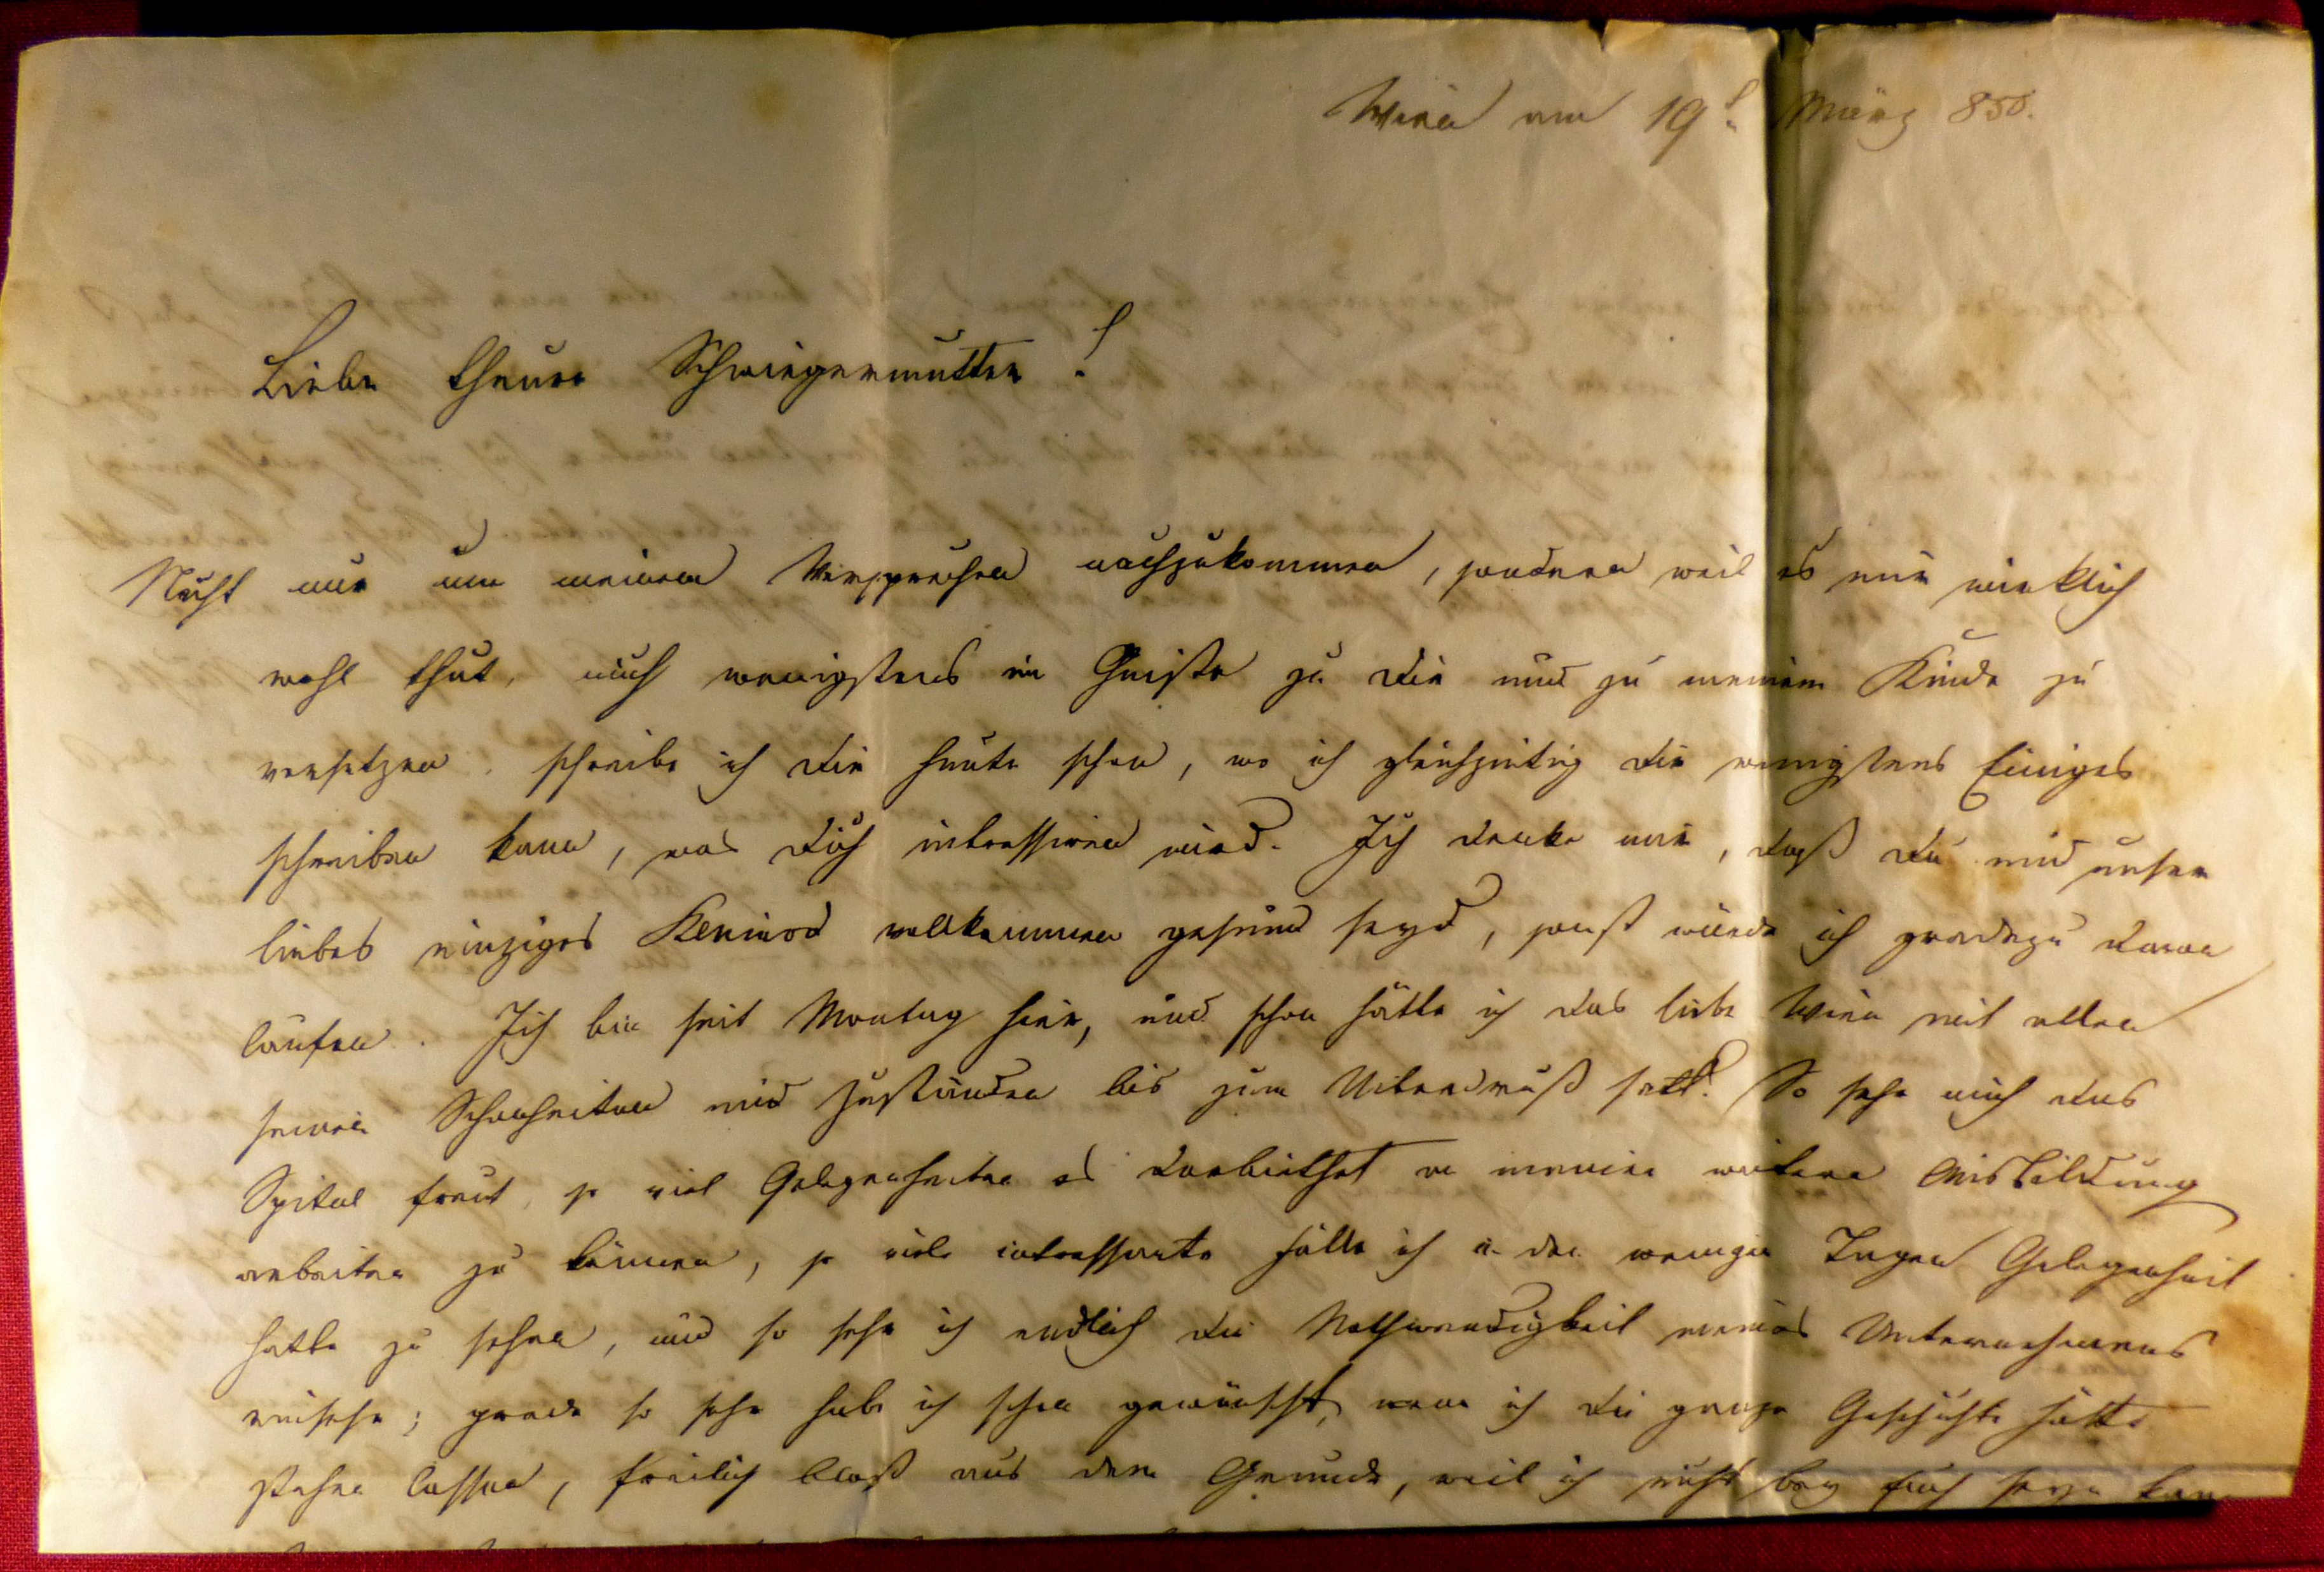 Wien am 19t. März 850.
Liebe theure Schwiegermutter!
Nicht nur um meinem Versprechen nachzukommen, sondern weil es mir wirklich
wohl thut, mich wenigstens im Geiste zu Dir und zu meinem Kinde zu
versetzen, schreibe ich Dir heute schon, wo ich gleichzeitig Dir wenigstens Einiges
schreiben kann, was Dich intressiren wird. Ich denke mir, daß Du und unser
liebes einziges Kleinod vollkommen gesund seyd, sonst würde ich gradezu davon
laufen. Ich bin seit Montag hier, und schon hätte ich das liebe Wien mit allen
seinen Schönheiten und Zuständen bis zum Uiberdruß satt. So sehr mich das
Spital freut, so viel Gelegenheiten es darbiethet an meiner weitern Ausbildung
arbeiten zu können, so viele intressante Fälle ich in den wenigen Tagen Gelegenheit
hatte zu sehen, und so sehr ich endlich die Nothwendigkeit meines Unternehmens
einsehe; grade so sehr habe ich schon gewünscht, wenn ich die ganze Geschichte hätte
stehen lassen, freilich bloß aus dem Grunde, weil ich nicht bey Euch seyn